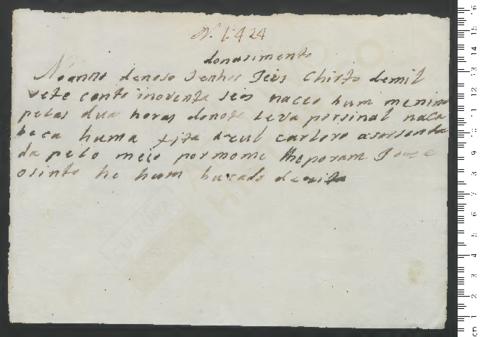 Nº 1424
donasimento
No anno denoso Senhor Jeis Christo demil
sete cento inoventa seis naceo hum menino
pelas dua horas denote leva por sinal naca
beca huma fita azul
da pelo meio por nome lhe poram Joze
o sinto he hum bucado de